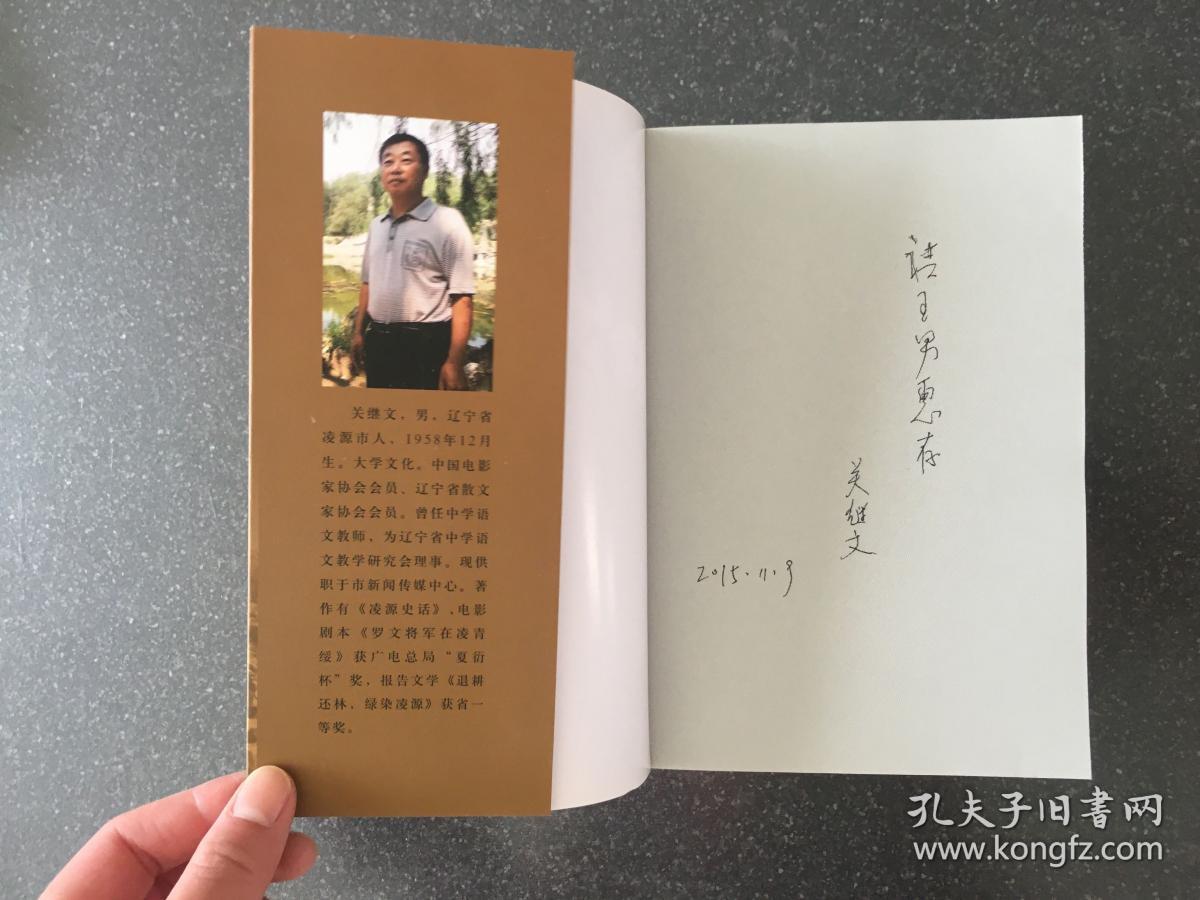 关继文，男，辽宁省
凌源市人，1958年12月
生。大学文化。中国电影
家协会会员、辽宁省散文
家协会会员。曾任中学语
文教师，为辽宁省中学语
文教学研究会理事。现供
职于市新闻传媒中心。著
作有《凌源史话》、电影
剧本《罗文将军在凌青
绥》获广电总局“夏衍
杯”奖，报告文学《退耕
还林，绿染凌源》获省一
等奖。
请王男惠存
关继文
2015.11.9
孔夫子旧书网
www.kongfz.com